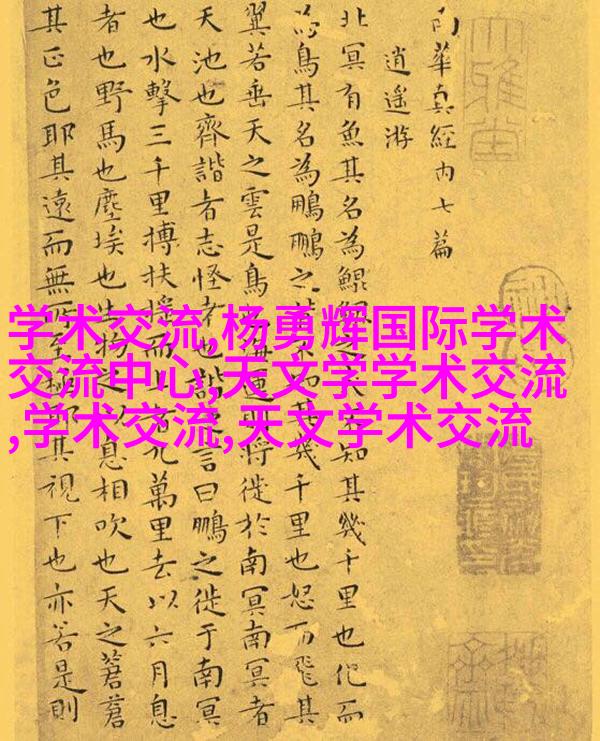 南華真經内七篇
逍遥游
北冥有魚其名為鯤鯤之大不知其幾千里也化而
為鳥其名為鵬鵬之背不知其幾千里也怒而飛其
翼若垂天之雲是鳥也海運則將徙於南冥南冥者
天池也齊諧者志怪者也諧之言曰鵬之徙于南冥
也水擊三千里摶扶摇而上者九萬里去以六月息
者也野馬也塵埃也生物之以息相吹也天之蒼蒼
其正色耶其遠而無所至極耶其視下也亦若是則
学术交流,杨勇辉国际学术
交流中心,天文学学术交流
,学术交流,天文学术交流